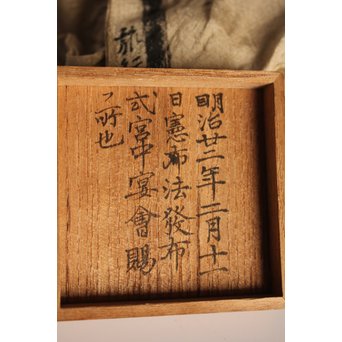 明治廿二年二月十一
日憲布法發布
式宮中宴會賜
フ所也